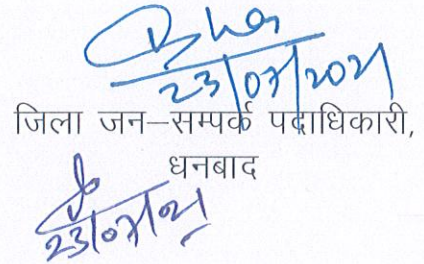 23/07/2021
जिला जन–सम्पर्क पदाधिकारी,
धनबाद
23/07/21